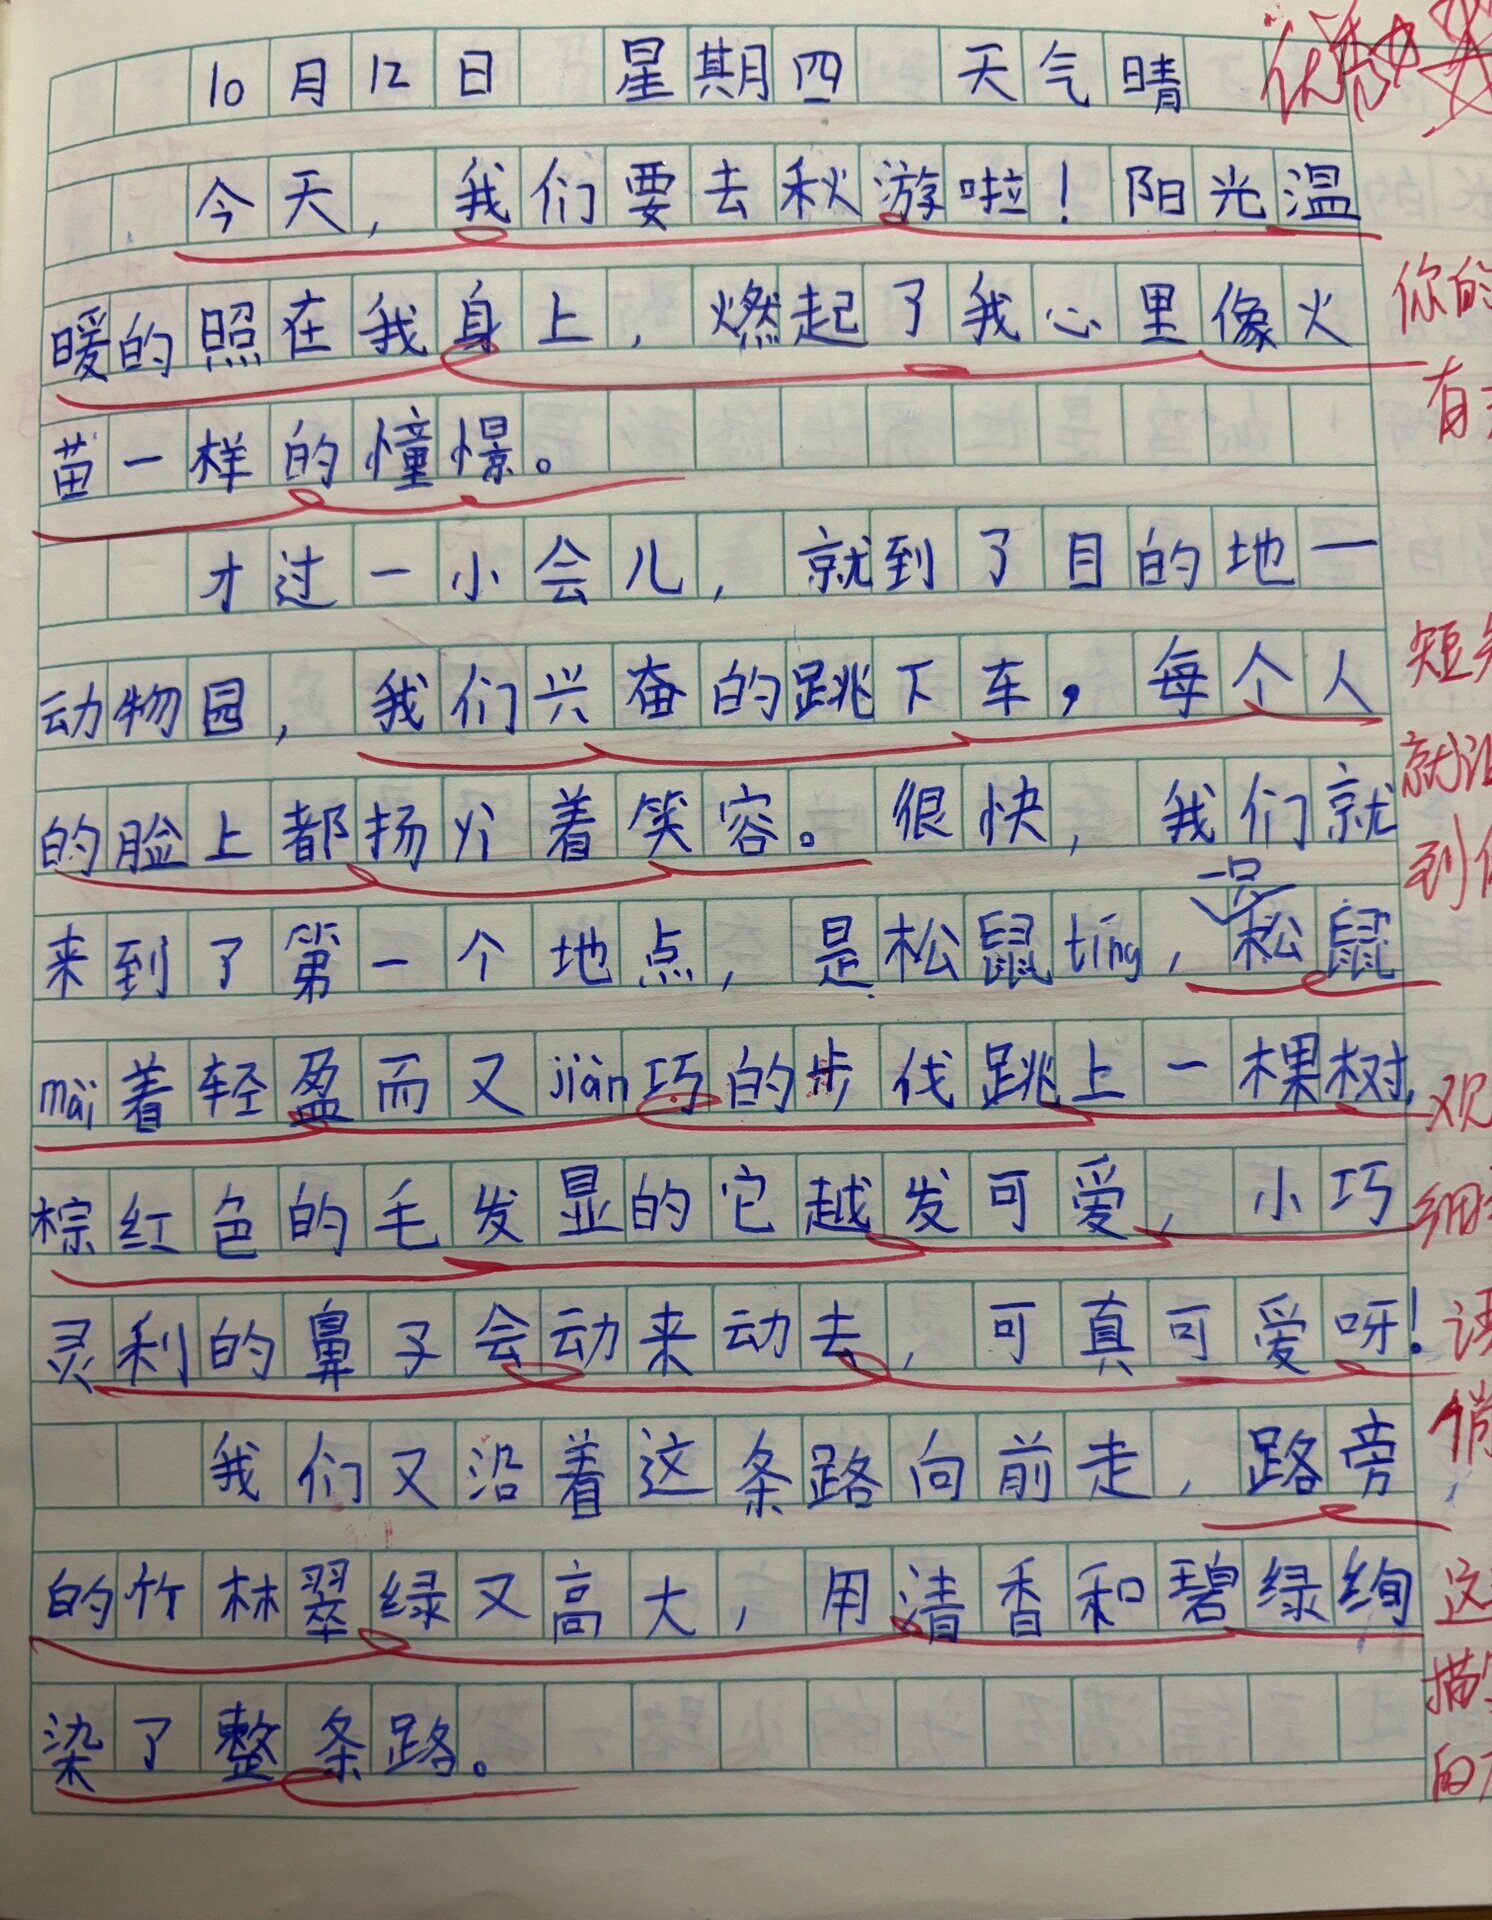 10月12日 星期四 天气晴
优秀
今天，我们要去秋游啦！阳光温
暖的照在我身上，燃起了我心里像火
你的
苗一样的憧憬。
有
才过一小会儿，就到了目的地一
动物园，我们兴奋的跳下车，每个人
短
的脸上都扬着笑容。很快，我们就
就让
一只
到
来到了第一个地点，是松鼠tíng，松鼠
mài着轻盈而又jiàn巧的步伐跳上一棵树，
观
棕红色的毛发显的它越发可爱，小巧
细
灵利的鼻子会动来动去，可真可爱呀！
我们又沿着这条路向前走，路旁
的竹林翠绿又高大，用清香和碧绿绚
这
描
染了整条路。
的